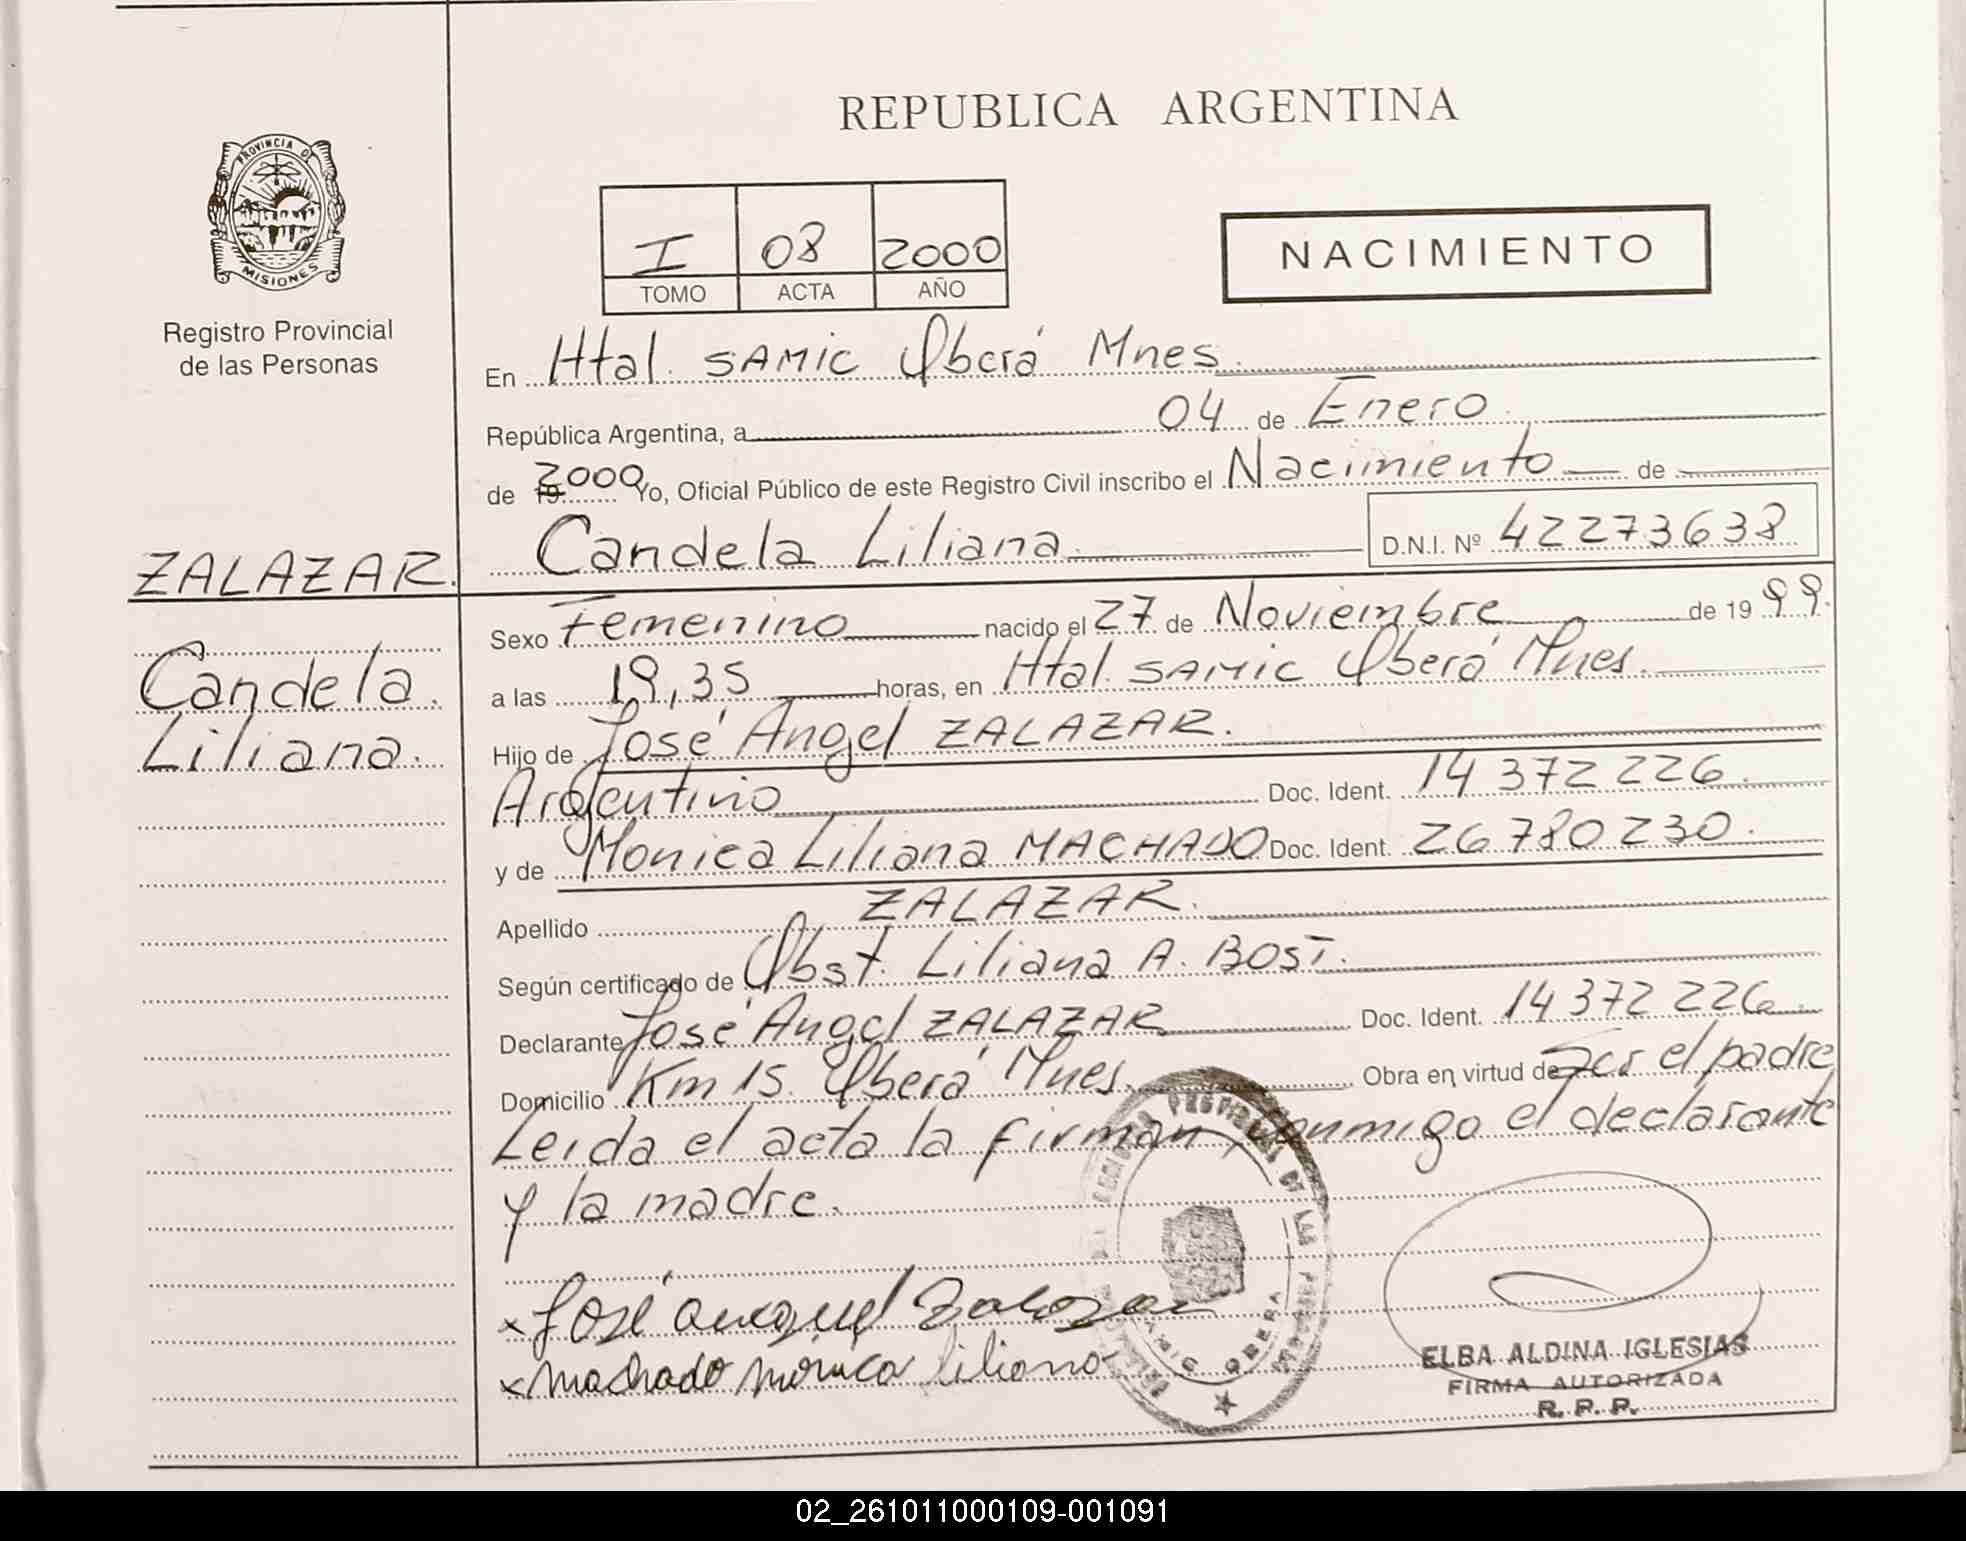 REPUBLICA ARGENTINA
PROVINCIA DE
MISIONES
Registro Provincial
de las Personas
I 08 2000
TOMO ACTA AÑO
NACIMIENTO
En Htal. SAMIC Oberá Mnes.
República Argentina, a 04 de Enero
de 2000 Yo, Oficial Público de este Registro Civil inscribo el Nacimiento de
Candela Liliana D.N.I. Nº 42273638
ZALAZAR.
Candela
Liliana.
Sexo Femenino nacido el 27 de Noviembre de 1999.
a las 19,35 horas, en Htal. SAMIC Oberá Mnes.
Hijo de José Angel ZALAZAR.
Argentino Doc. Ident. 14 372 226.
y de Monica Liliana MACHADO Doc. Ident. 26 780 230.
Apellido ZALAZAR.
Según certificado de Obst. Liliana A. BOST.
Declarante José Angel ZALAZAR Doc. Ident. 14 372 226.
Domicilio Km 15. Oberá Mnes. Obra en virtud de Ser el padre
Leida el acta la firman, conmigo el declarante
y la madre.
x José Zalazar
x Machado Monica liliana
OBERA
ELBA ALDINA IGLESIAS
FIRMA AUTORIZADA
R. P. P.
02_261011000109-001091